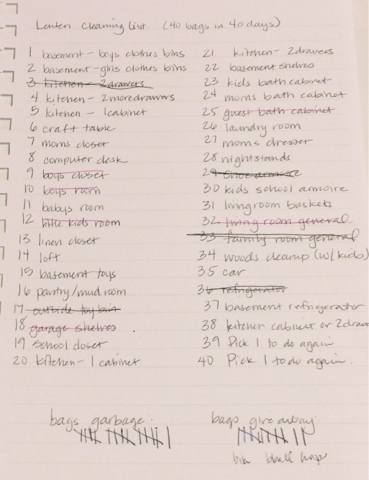 Lenten Cleaning List (40 bags in 40 days)
1 basement - boys clothes bins
2 basement - girls clothes bins
3 kitchen - 2 drawers
4 kitchen - 2 more drawers
5 kitchen - 1 cabinet
6 craft table
7 moms closet
8 computer desk
9 boys closet
10 boys room
11 babys room
12 little kids room
13 linen closet
14 loft
15 basement toys
16 pantry/mudroom
17 outside toy bin
18 garage shelves
19 school closet
20 kitchen - 1 cabinet
21 kitchen - 2 drawers
22 basement shelves
23 kids bath cabinet
24 moms bath cabinet
25 guest bath cabinet
26 laundry room
27 moms dresser
28 nightstands
29 shoe armoire
30 kids school armoire
31 livingroom baskets
32 living room general
33 family room general
34 woods cleanup (w/ kids)
35 car
36 refrigerator
37 basement refrigerator
38 kitchen cabinet or 2 draw
39 Pick 1 to do again
40 Pick 1 to do again.
bags garbage:
bags give away
bball hoop